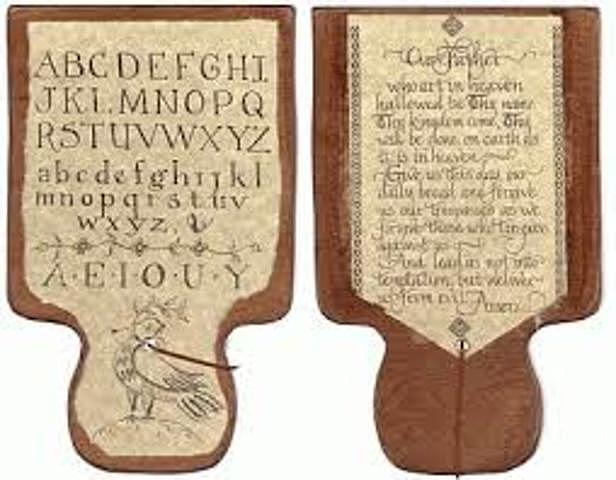 A B C D E F G H I
J K L M N O P Q
R S T U V W X Y Z
a b c d e f g h i j k l
m n o p q r s t u v
w x y z, &
A · E · I · O · U · Y
Our Father
who art in heaven
hallowed be Thy name
Thy kingdom come, Thy
will be done on earth as
it is in heaven
Give us this day our
daily bread and forgive
us our trespasses as we
forgive those who trespass
against us
And lead us not into
temptation, but deliver
us from evil. Amen.